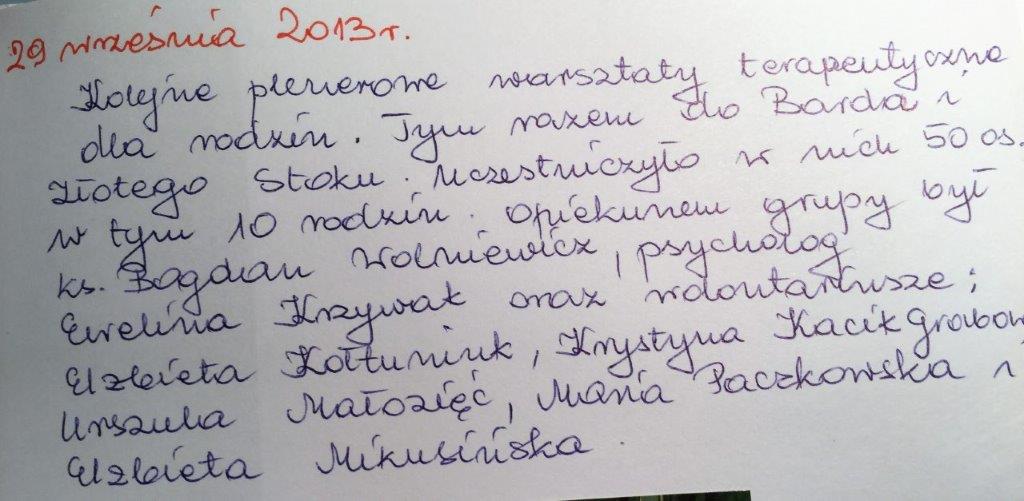 29 września 2013 r.
Kolejne plenerowe warsztaty terapeutyczne
dla rodzin. Tym razem do Barda i
Złotego Stoku. Uczestniczyło w nich 50 os.
w tym 10 rodzin. Opiekunem grupy był
ks. Bogdan Wolniewicz, psycholog
Ewelina Krzywak oraz wolontariusze;
Elżbieta Kołtuniuk, Krystyna Kacik Grabow
Urszula Małozięć, Maria Paczkowska i
Elżbieta Mikusińska.